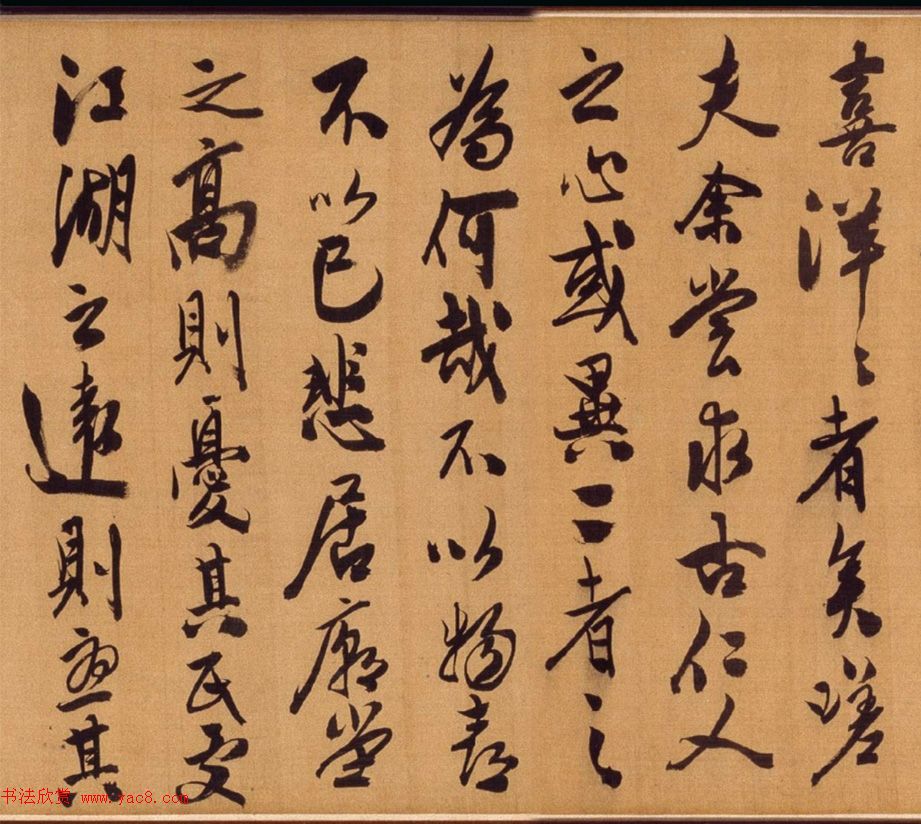 喜洋〻者矣嗟
夫余嘗求古仁人
之心或異二者之
為何哉不以物喜
不以己悲居廟堂
之高則憂其民處
江湖之遠則憂其
书法欣赏 www.yac8.com